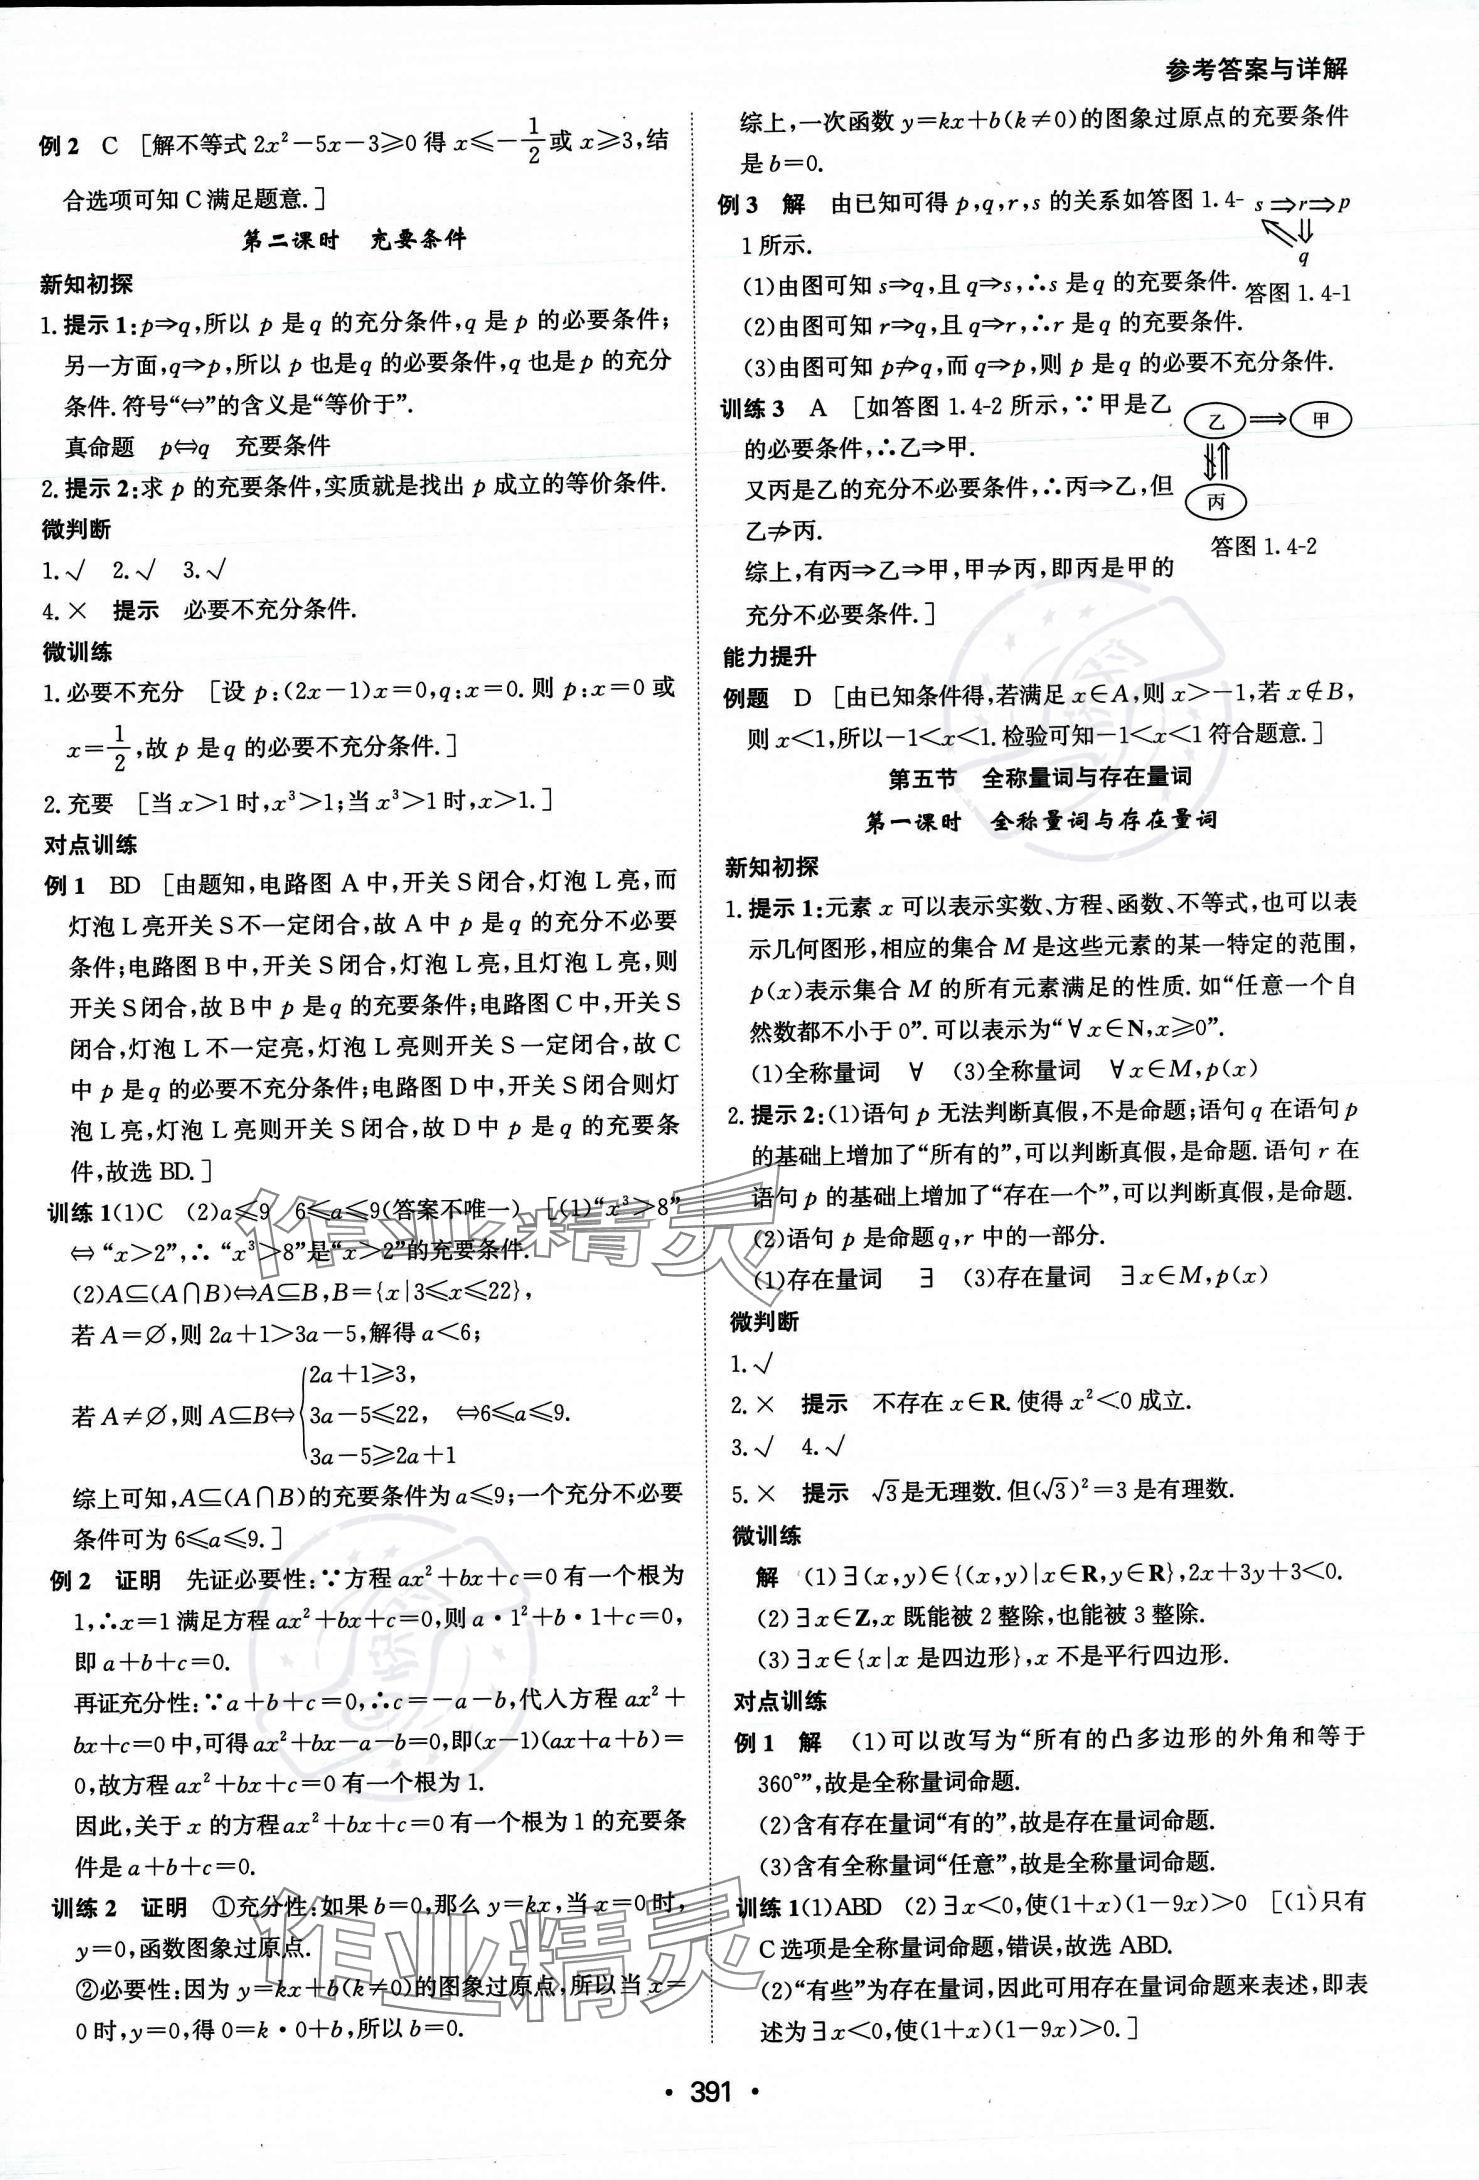 参考答案与详解
例2　C　[解不等式 2x²-5x-3≥0 得 x≤-1/2 或 x≥3,结
合选项可知 C 满足题意.]
第二课时　充要条件
新知初探
1. 提示1:p⇒q,所以 p 是 q 的充分条件,q 是 p 的必要条件;
另一方面,q⇒p,所以 p 也是 q 的必要条件,q 也是 p 的充分
条件. 符号“⇔”的含义是“等价于”.
真命题　p⇔q　充要条件
2. 提示2:求 p 的充要条件,实质就是找出 p 成立的等价条件.
微判断
1. √　2. √　3. √
4. ×　提示　必要不充分条件.
微训练
1. 必要不充分　[设 p:(2x-1)x=0,q:x=0. 则 p:x=0 或
x=1/2,故 p 是 q 的必要不充分条件.]
2. 充要　[当 x>1 时,x³>1;当 x³>1 时,x>1.]
对点训练
例1　BD　[由题知,电路图 A 中,开关 S 闭合,灯泡 L 亮,而
灯泡 L 亮开关 S 不一定闭合,故 A 中 p 是 q 的充分不必要
条件;电路图 B 中,开关 S 闭合,灯泡 L 亮,且灯泡 L 亮,则
开关 S 闭合,故 B 中 p 是 q 的充要条件;电路图 C 中,开关 S
闭合,灯泡 L 不一定亮,灯泡 L 亮则开关 S 一定闭合,故 C
中 p 是 q 的必要不充分条件;电路图 D 中,开关 S 闭合则灯
泡 L 亮,灯泡 L 亮则开关 S 闭合,故 D 中 p 是 q 的充要条
件,故选 BD.]
训练1(1)C　(2)a≤9　6≤a≤9(答案不唯一)　[(1)“x³>8”
⇔“x>2”,∴“x³>8”是“x>2”的充要条件.
(2)A⊆(A∩B)⇔A⊆B,B={x|3≤x≤22},
若 A=∅,则 2a+1>3a-5,解得 a<6;
2a+1≥3,
若 A≠∅,则 A⊆B⇔{3a-5≤22,　⇔6≤a≤9.
3a-5≥2a+1
综上可知,A⊆(A∩B)的充要条件为 a≤9;一个充分不必要
条件可为 6≤a≤9.]
例2　证明　先证必要性:∵方程 ax²+bx+c=0 有一个根为
1,∴x=1 满足方程 ax²+bx+c=0,则 a·1²+b·1+c=0,
即 a+b+c=0.
再证充分性:∵a+b+c=0,∴c=-a-b,代入方程 ax²+
bx+c=0 中,可得 ax²+bx-a-b=0,即(x-1)(ax+a+b)=
0,故方程 ax²+bx+c=0 有一个根为 1.
因此,关于 x 的方程 ax²+bx+c=0 有一个根为 1 的充要条
件是 a+b+c=0.
训练2　证明　①充分性:如果 b=0,那么 y=kx,当 x=0 时,
y=0,函数图象过原点.
②必要性:因为 y=kx+b(k≠0)的图象过原点,所以当 x=
0 时,y=0,得 0=k·0+b,所以 b=0.
综上,一次函数 y=kx+b(k≠0)的图象过原点的充要条件
是 b=0.
例3　解　由已知可得 p,q,r,s 的关系如答图 1.4-
1 所示.
s⇒r⇒p
q
答图 1.4-1
(1)由图可知 s⇒q,且 q⇒s,∴s 是 q 的充要条件.
(2)由图可知 r⇒q,且 q⇒r,∴r 是 q 的充要条件.
(3)由图可知 p⇏q,而 q⇒p,则 p 是 q 的必要不充分条件.
训练3　A　[如答图 1.4-2 所示,∵甲是乙
的必要条件,∴乙⇒甲.
又丙是乙的充分不必要条件,∴丙⇒乙,但
乙⇏丙.
综上,有丙⇒乙⇒甲,甲⇏丙,即丙是甲的
充分不必要条件.]
乙　甲
丙
答图 1.4-2
能力提升
例题　D　[由已知条件得,若满足 x∈A,则 x>-1,若 x∉B,
则 x<1,所以-1<x<1. 检验可知-1<x<1 符合题意.]
第五节　全称量词与存在量词
第一课时　全称量词与存在量词
新知初探
1. 提示1:元素 x 可以表示实数、方程、函数、不等式,也可以表
示几何图形,相应的集合 M 是这些元素的某一特定的范围,
p(x)表示集合 M 的所有元素满足的性质. 如“任意一个自
然数都不小于 0”. 可以表示为“∀x∈N,x≥0”.
(1)全称量词　∀　(3)全称量词　∀x∈M,p(x)
2. 提示2:(1)语句 p 无法判断真假,不是命题;语句 q 在语句 p
的基础上增加了“所有的”,可以判断真假,是命题. 语句 r 在
语句 p 的基础上增加了“存在一个”,可以判断真假,是命题.
(2)语句 p 是命题 q,r 中的一部分.
(1)存在量词　∃　(3)存在量词　∃x∈M,p(x)
微判断
1. √
2. ×　提示　不存在 x∈R. 使得 x²<0 成立.
3. √　4. √
5. ×　提示　√3是无理数. 但(√3)²=3 是有理数.
微训练
解　(1)∃(x,y)∈{(x,y)|x∈R,y∈R},2x+3y+3<0.
(2)∃x∈Z,x 既能被 2 整除,也能被 3 整除.
(3)∃x∈{x|x 是四边形},x 不是平行四边形.
对点训练
例1　解　(1)可以改写为“所有的凸多边形的外角和等于
360°”,故是全称量词命题.
(2)含有存在量词“有的”,故是存在量词命题.
(3)含有全称量词“任意”,故是全称量词命题.
训练1(1)ABD　(2)∃x<0,使(1+x)(1-9x)>0　[(1)只有
C 选项是全称量词命题,错误,故选 ABD.
(2)“有些”为存在量词,因此可用存在量词命题来表述,即表
述为∃x<0,使(1+x)(1-9x)>0.]
作业精灵
作业精灵
· 391 ·